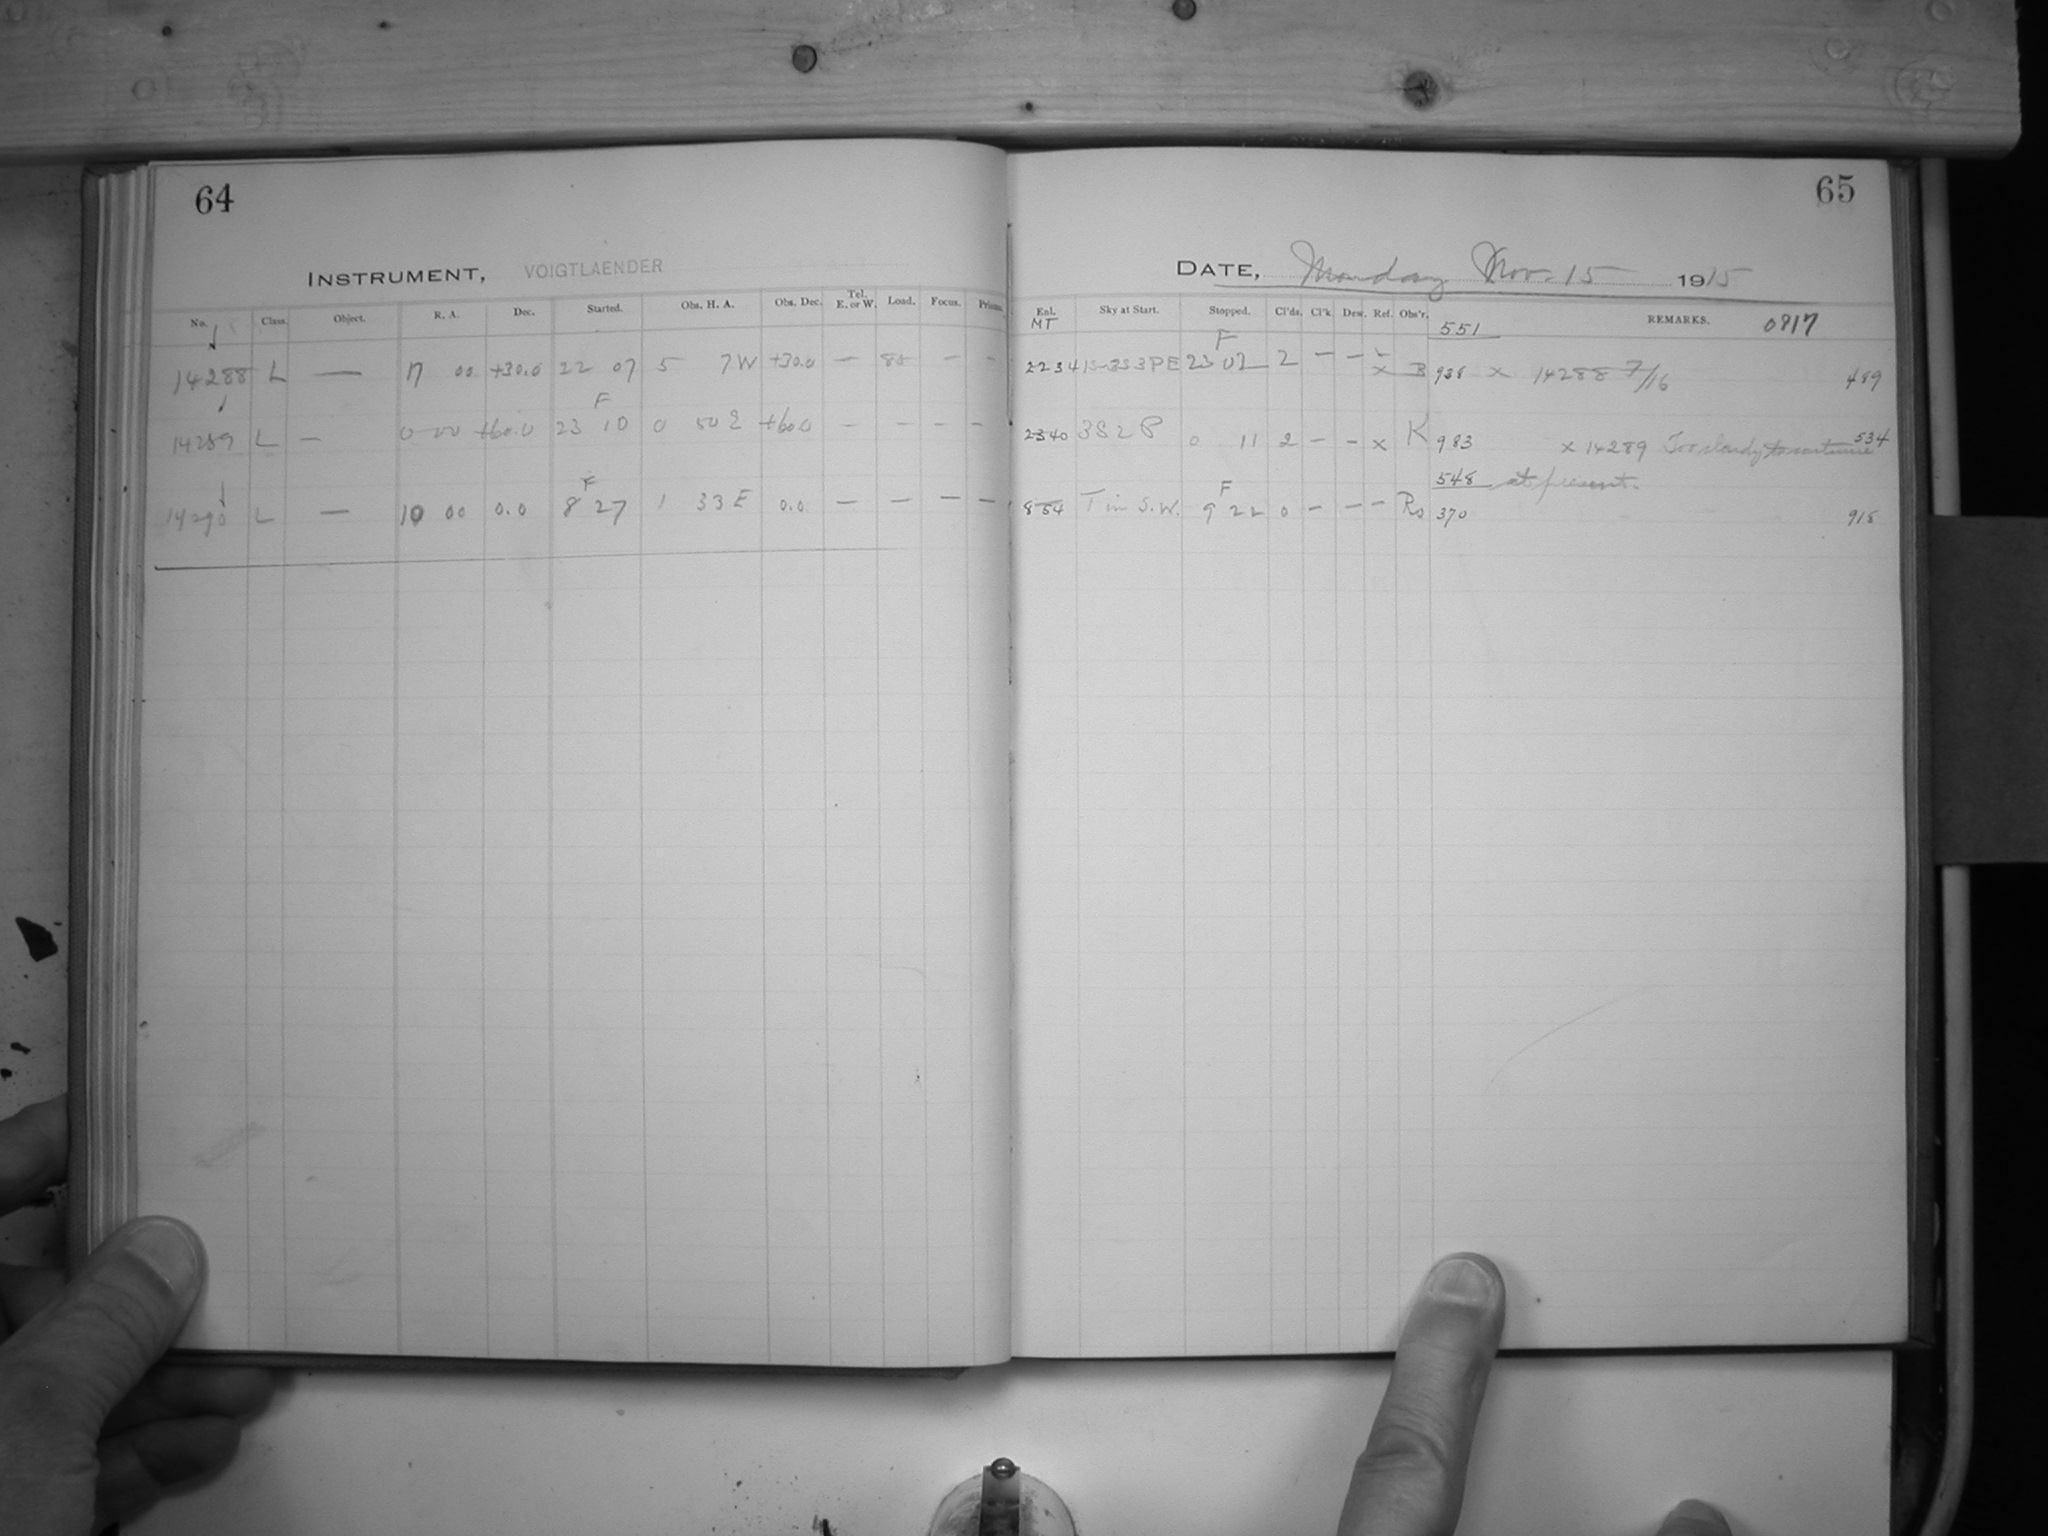 64
INSTRUMENT, VOIGTLAENDER
No. Class. Object. R. A. Dec. Started. Obs. H. A. Obs. Dec. Tel. E. or W. Load. Focus.
14288 L — 17 00 +30.0 22 07 5 7 W +30.0 — — —
F
14289 L — 0 00 +60.0 23 10 0 50 E +60.0 — — — —
F
14290 L — 10 00 0.0 8 27 1 33 E 0.0 — — — —
65
DATE, Monday Nov. 15 1915
Enl. Sky at Start. Stopped. Cl'ds. Cl'k. Dew. Ref. Obs'r. REMARKS. 0917
MT 551
F
2234 23 02 2 — — x B 938 x 14288 7/16 489
2340 3S2P 0 11 2 — — x K 983 x 14289 Too cloudy to continue 534
548 at present.
F
854 T in S.W. 9 22 0 — — — Rs 370 918